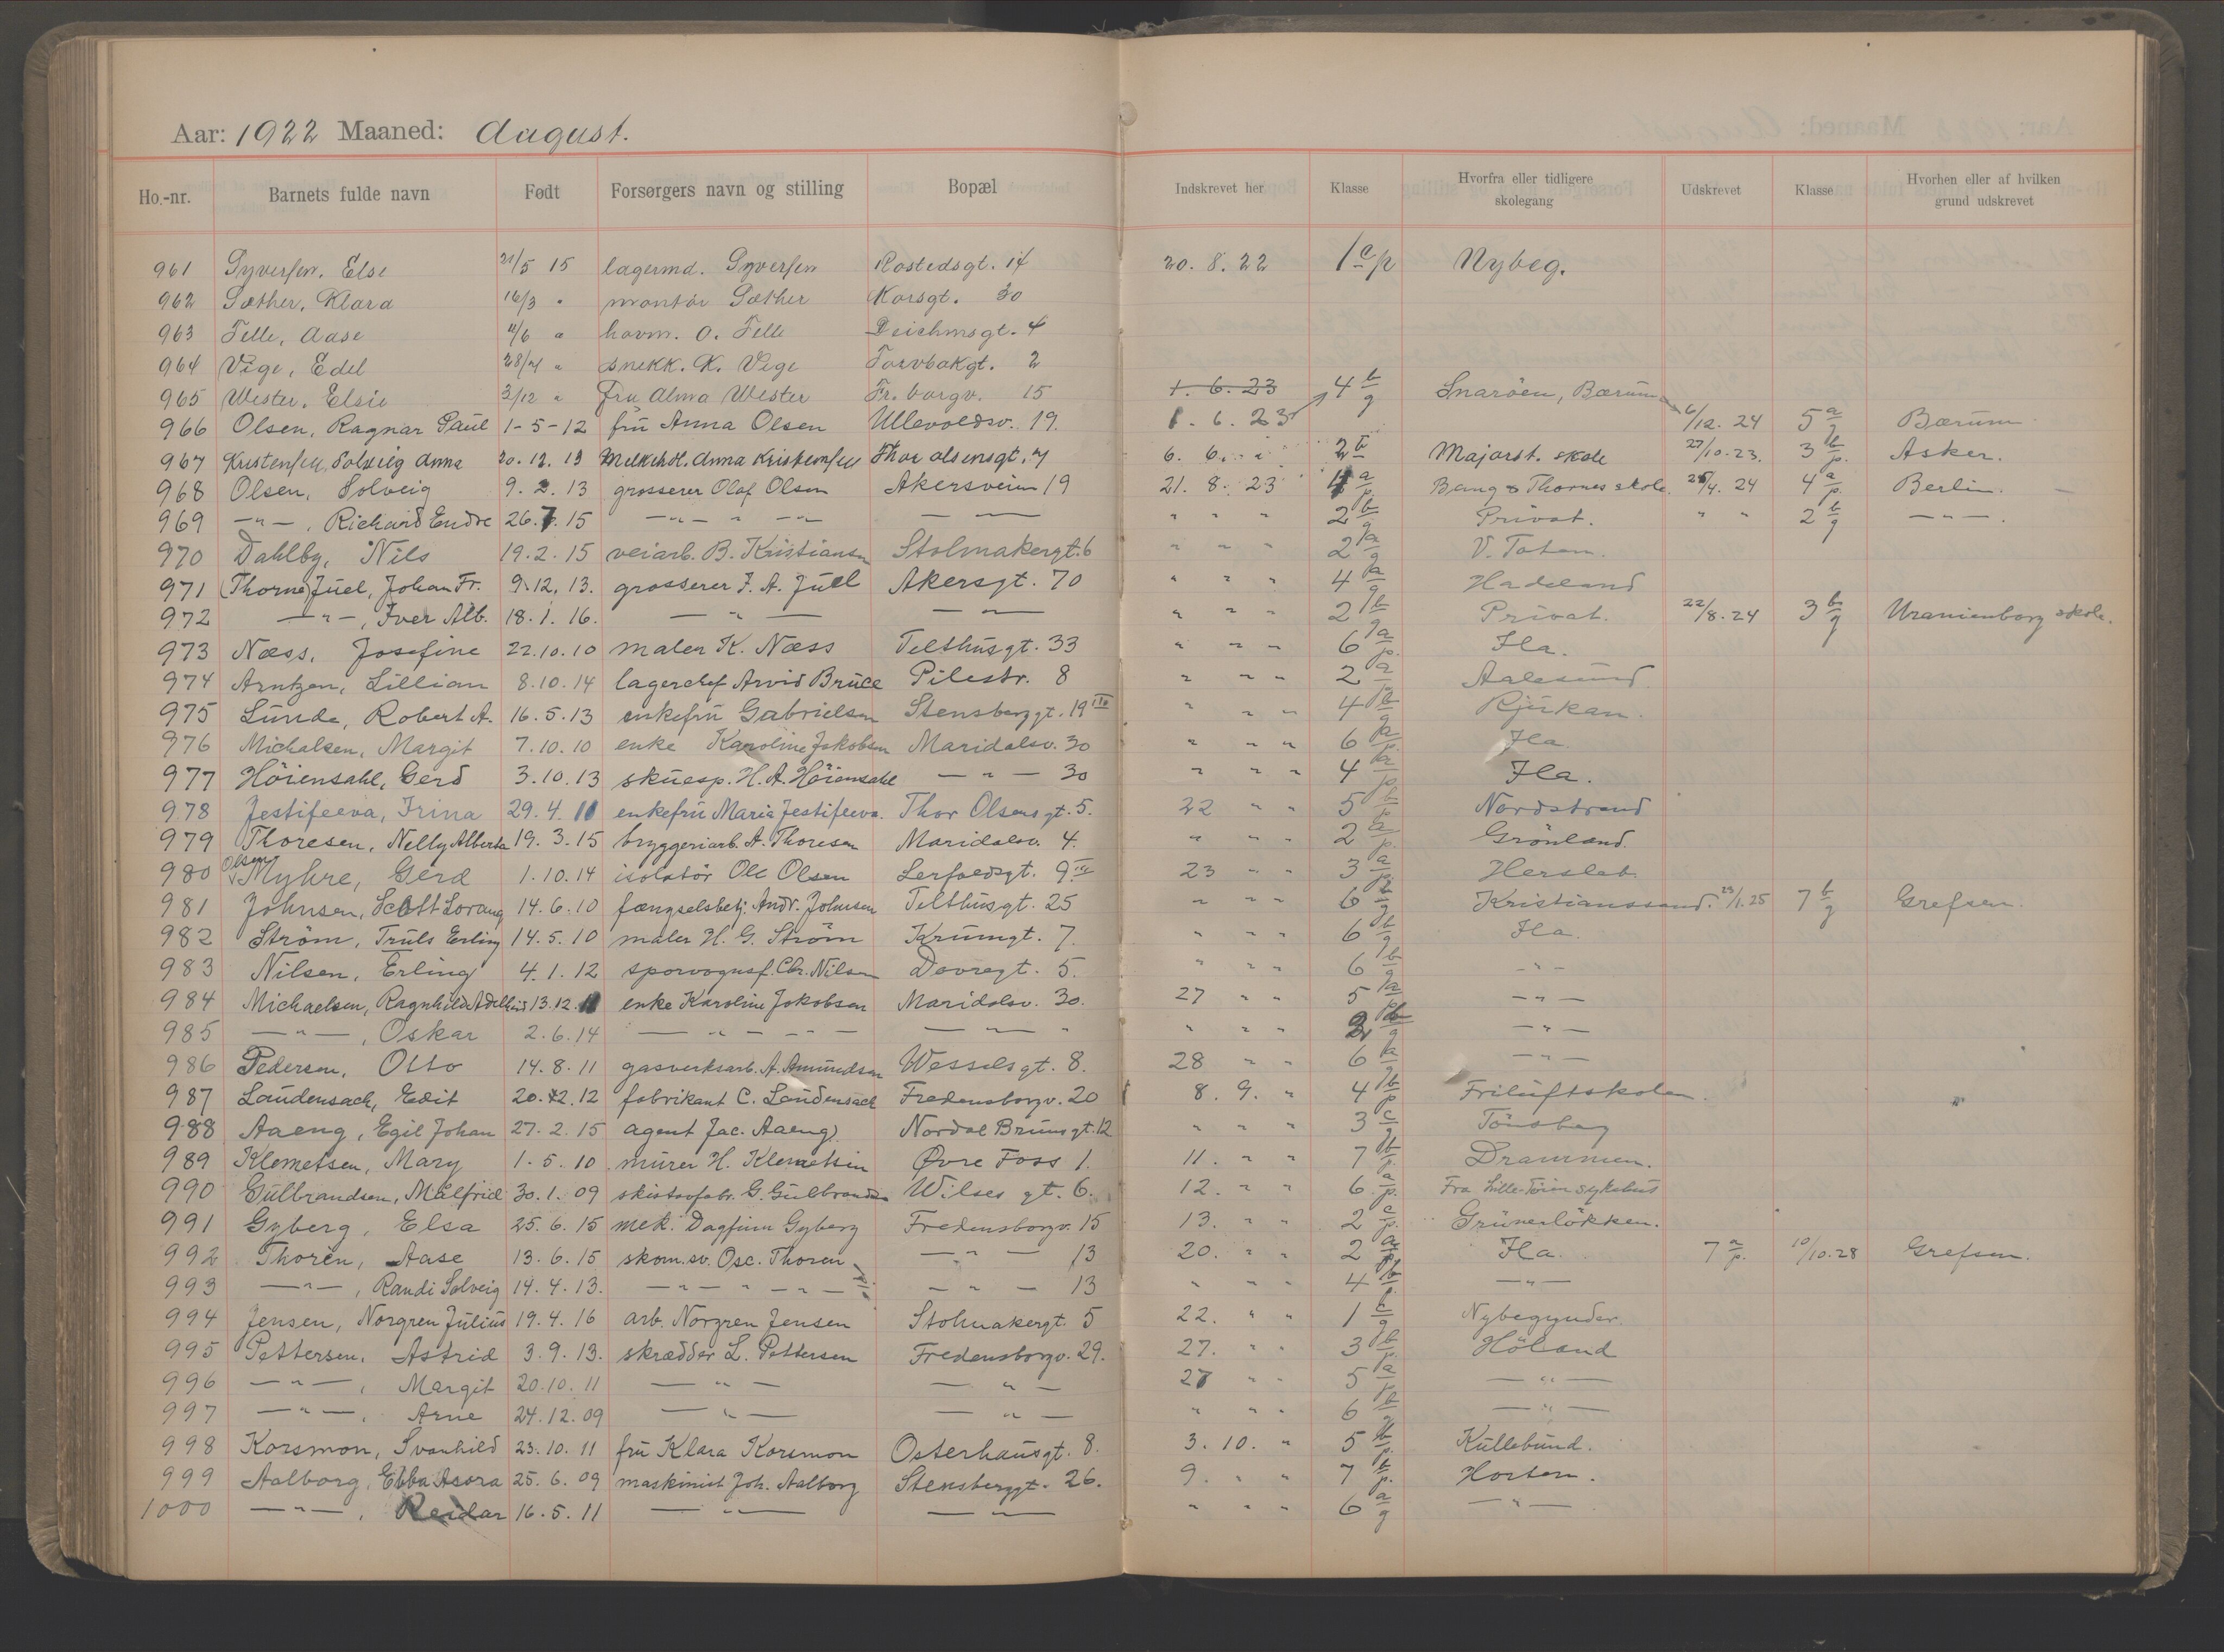 Aar: 1922 Maaned: August.
Ho.-nr. Barnets fulde navn Født Forsørgers navn og stilling Bopæl Indskrevet her Klasse Hvorfra eller tidligere skolegang Udskrevet Klasse Hvorhen eller af hvilken grund udskrevet
961 Syversen, Else 21/5 15 lagermd. Syversen Rostedsgt. 14 20. 8. 22 1 c/p Nybeg.
962 Sæther, Klara 16/3 " montør Sæther Korsgt. 30
963 Telle, Aase 11/6 " havm. O. Telle Deichmsgt. 4
964 Vige, Edel 28/4 " snekk. K. Vige Torvbakgt. 2
965 Wester, Elsie 3/12 " Fru Alma Wester Fr. borgv. 15 1. 6. 23 4 b/g Snarøen, Bærum
966 Olsen, Ragnar Paul 1-5-12 fru Anna Olsen Ullevoldsv. 19. 1. 6. 23 6/12. 24 5 a/g Bærum
967 Kristensen, Solveig Anna 20. 12. 13 Melkehdl. Anna Kristensen Thor Olsensgt. 7 6. 6. " " 2 b Majorst. skole 27/10-23. 3 b/p. Asker.
968 Olsen, Solveig 9. 2. 13 grosserer Olaf Olsen Akersveien 19 21. 8. 23 4 a/p. Bang & Thornes skole. 25/4. 24 4 a/p. Berlin. —
969 —"—, Richard Endre 26. 7. 15 —"— " —"— — " — " " " 2 b/g Privat. " " 2 b/g —"—.
970 Dahlby, Nils 19. 2. 15 veiarb. B. Kristiansen Stolmakergt. 6 " " " 2 a/g V. Toten.
971 (Thorne) Juel, Johan Fr. 9. 12. 13. grosserer J. A. Juel Akersgt. 70 " " " 4 a/g Hadeland
972 —"—, Iver Alb. 18. 1. 16. — " — — " — " 2 b/g Privat. 22/8. 24 3 b/g Uranienborg skole.
973 Næss, Josefine 22. 10. 10 maler K. Næss Telthusgt. 33 " " " 6 a/p. Ila.
974 Arntzen, Lillian 8. 10. 14 lagerchef Arvid Bruce Pilestr. 8 " " " 2 a/p Aalesund.
975 Lunde, Robert A. 16. 5. 13 enkefru Gabrielsen Stensberggt. 19 III " " " 4 b/g Rjukan.
976 Michalsen, Margit 7. 10. 10 enke Karoline Jakobsen Maridalsv. 30 " " " 6 a/p. Ila
977 Höiensahl, Gerd 3. 10. 13 skuesp. H. A. Höiensahl — " — 30 " " " 4 a/p Ila.
978 Jestifeeva, Irina 29. 4. 11 enkefru Maria Jestifeeva. Thor Olsensgt. 5. 22 " " 5 b/p Nordstrand
979 Thoresen, Nelly Alberta 19. 3. 15 bryggeriarb. A. Thoresen Maridalsv. 4. " " " 2 a/p. Grönland.
980 Olsen Myhre, Gerd 1. 10. 14 isolatör Ole Olsen Lerfoedsgt. 9 IV 23 " " 3 a/p. Hersleb.
981 Johnsen, Scott Lorang 14. 6. 10 fængselsbetj. Andr. Johnsen Telthusgt. 25 " " " 6 b/g Kristianssand. 23/1. 25 7 b/g Grefsen.
982 Ström, Truls Erling 14. 5. 10 maler H. G. Ström Krumgt. 7. " " " 6 b/g Ila.
983 Nilsen, Erling 4. 1. 12 sporvognsf. Chr. Nilsen Dovregt. 5. " " " 6 b/g —"—
984 Michaelsen, Ragnhild Adelheid 13. 12. 11 enke Karoline Jokobsen Maridalsv. 30. 27 " " 5 a/p —"—
985 —"—, Oskar 2. 6. 14 — " — " — — " — " " " " 2 b/g —"—
986 Pedersen, Otto 14. 8. 11 gasverksarb. A. Amundsen Wesselsgt. 8. 28 " " 6 a/g —"—
987 Laudensach, Edit 20. 12. 12 fabrikant C. Laudensach Fredensborgv. 20 8. 9. " 4 b/p Friluftskolen.
988 Aaeng, Egil Johan 27. 2. 15 agent Jac. Aaeng Nordal Brunsgt. 12 " " " 3 c/g Tönsberg
989 Klemetsen, Mary 1. 5. 10 murer H. Klemetsen Øvre Foss 1. 11. " " 7 b/p. Drammen.
990 Gulbrandsen, Målfrid 30. 1. 09 skistavfabr. G. Gulbrandsen Wilses gt. 6. 12. " " 6 a/p. Fra Lille-Töien sykehus
991 Gyberg, Elsa 25. 6. 15 mek. Dagfinn Gyberg Fredensborgv. 15 13. " " 2 c/p. Grünerlökken.
992 Thorén, Aase 13. 6. 15 skom.sv. Osc. Thoren — " — 13 20. " " 2 a/p Ila. 7 a/p. 10/10. 28 Grefsen.
993 —"—, Randi Solveig 14. 4. 13. —"— " —"— — " — 13 " " " 4 b/p. —"—
994 Jensen, Norgren Julius 19. 4. 16 arb. Norgren Jensen Stolmakergt. 5 22. " " 1 b/g Nybegynder.
995 Pettersen, Astrid 3. 9. 13. skrædder L. Pettersen Fredensborgv. 29. 27. " " 3 b/p. Höland
996 —"—, Margit 20. 10. 11 — " — — " — 27 " " 5 a/p —"—
997 —"—, Arne 24. 12. 09 — " — — " — " " " 6 b/g —"—
998 Korsmon, Svanhild 23. 10. 11 fru Klara Korsmon Osterhausgt. 8. 3. 10. " 5 b/p. Kullebund.
999 Aalborg, Ebba Asora 25. 6. 09 maskinist Joh. Aalborg Stensberggt. 26. 9. " " 7 b/p. Horten.
1000 —"—, Reidar 16. 5. 11 — " — — " — " " " 6 a/g —"—